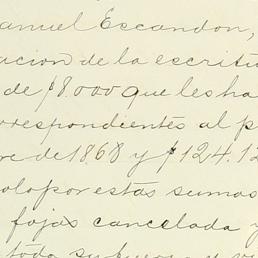 anuel Escandon,
acion de la escritu
de $8.000 que les ha
rrespondientes al p
re de 1868 y $124.12
olo por estas sumas
fojas cancelada y
toda su fuerza y vi